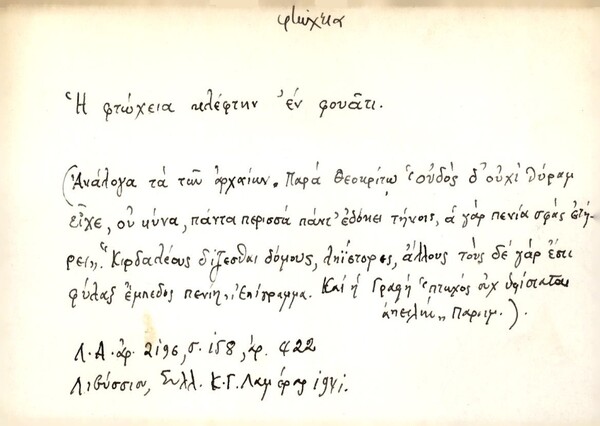 φτώχεια
Ἡ φτώχεια κλέφτην ἐν φουᾶτι.
(Ἀνάλογα τὰ τῶν ἀρχαίων. Παρὰ Θεοκρίτῳ "οὐδὸς δ' οὐχὶ θύραν
εἶχε, οὐ κύνα, πάντα περισσὰ πάντ' ἐδόκει τήνοις, ἁ γὰρ πενία σφὰς ἐτή-
ρει". "Κερδαλέους δίζεσθαι δόμους, ληΐστορες, ἄλλους τοῖς δὲ γάρ ἐστι
φύλαξ ἔμπεδος πενίη", Ἐπίγραμμα. Καὶ ἡ Γραφή "πτωχὸς οὐχ ὑφίσταται
ἀπειλήν" Παροιμ.).
Λ.Α. ἀρ. 2196, σ. 158, ἀρ. 422
Λιβύσσιον, Συλλ. Κ.Γ. 1941.